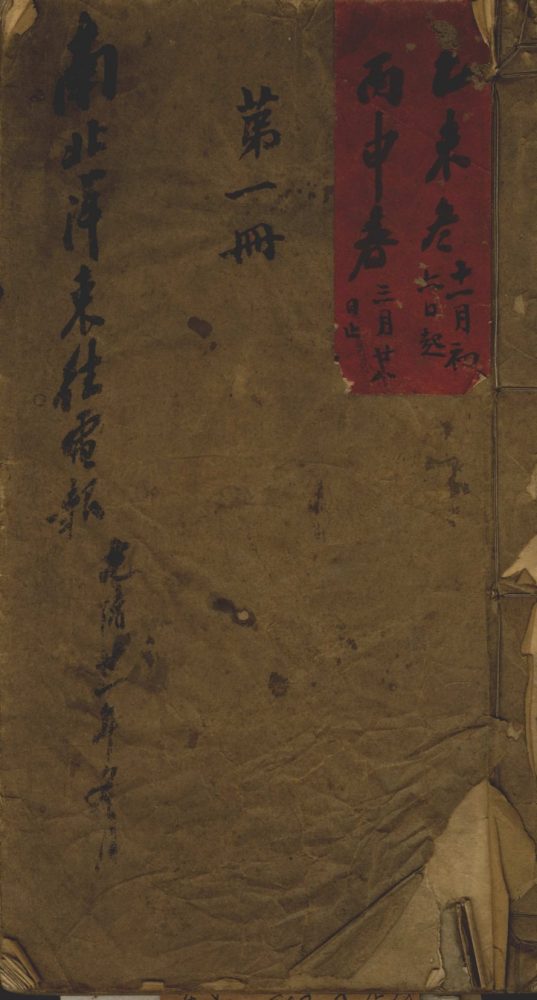 乙未冬十一月初六日起
丙申春三月廿八日止
第一冊
南北洋来往電報
光緒廿一年冬月